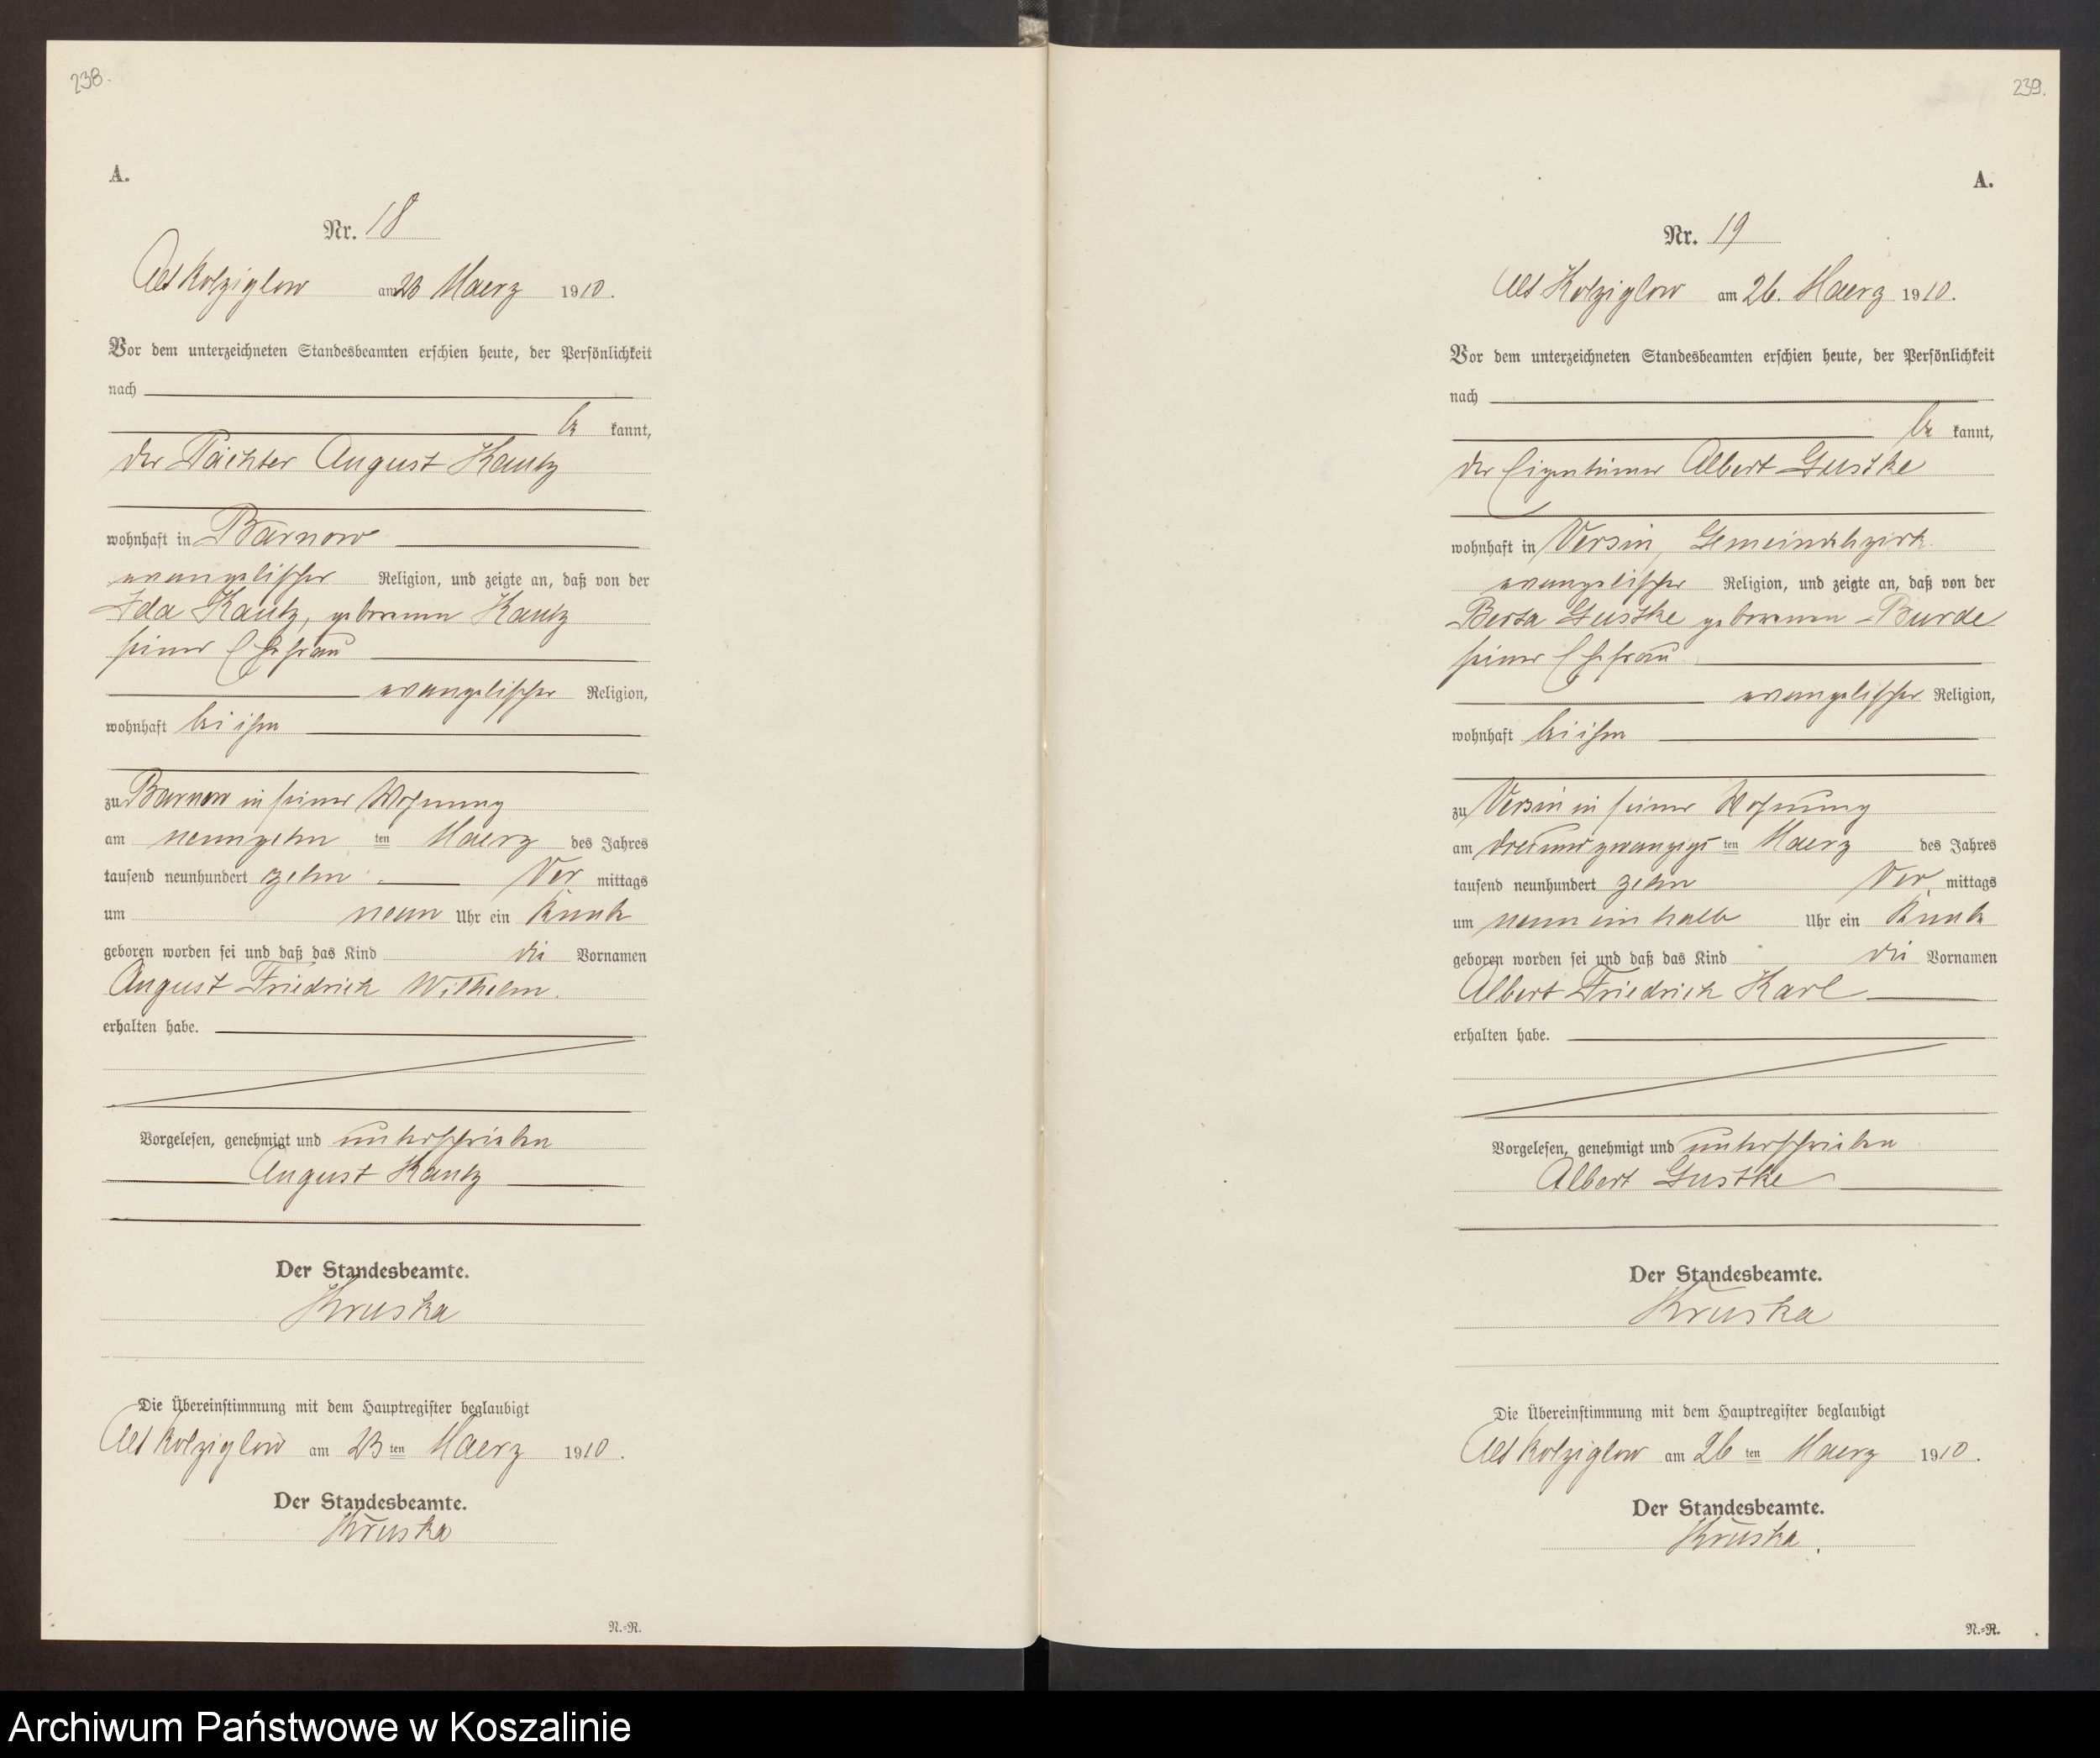 238.
A.
Nr. 18
Alt Kolziglow am 23 Maerz 1910.
Vor dem unterzeichneten Standesbeamten erschien heute, der Persönlichkeit
nach
be kannt,
der Pächter August Kautz
wohnhaft in Barnow
evangelischer Religion, und zeigte an, daß von der
Ida Kautz, geborenen Kautz
seiner Ehefrau
evangelischer Religion,
wohnhaft bei ihm
zu Barnow in seiner Wohnung
am neunzehn ten Maerz des Jahres
tausend neunhundert zehn Vor mittags
um neun Uhr ein Knabe
geboren worden sei und daß das Kind die Vornamen
August Friedrich Wilhelm.
erhalten habe.
Vorgelesen, genehmigt und unterschrieben
August Kautz
Der Standesbeamte.
Kruska
Die Übereinstimmung mit dem Hauptregister beglaubigt
Alt Kolziglow am 23 ten Maerz 1910.
Der Standesbeamte.
Kruska
N.-R.
239.
A.
Nr. 19
Alt Kolziglow am 26. Maerz 1910.
Vor dem unterzeichneten Standesbeamten erschien heute, der Persönlichkeit
nach
be kannt,
der Eigentümer Albert Gustke
wohnhaft in Versin, Gemeindebezirk
evangelischer Religion, und zeigte an, daß von der
Berta Gustke geborenen Burde
seiner Ehefrau
evangelischer Religion,
wohnhaft bei ihm
zu Versin in seiner Wohnung
am dreiundzwanzigs ten Maerz des Jahres
tausend neunhundert zehn Vor mittags
um neun ein halb Uhr ein Knabe
geboren worden sei und daß das Kind die Vornamen
Albert Friedrich Karl
erhalten habe.
Vorgelesen, genehmigt und unterschrieben
Albert Gustke
Der Standesbeamte.
Kruska
Die Übereinstimmung mit dem Hauptregister beglaubigt
Alt Kolziglow am 26 ten Maerz 1910.
Der Standesbeamte.
Kruska.
N.-R.
Archiwum Państwowe w Koszalinie